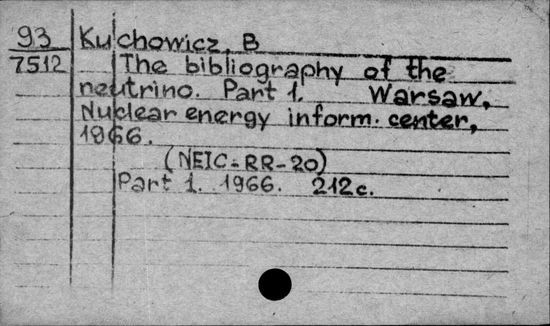 93 Kuchowicz, B
7512 The bibliography of the
neutrino. Part 1. Warsaw,
Nuclear energy inform. center,
1966.
(NEIC-RR-20)
Part 1. 1966. 212c.